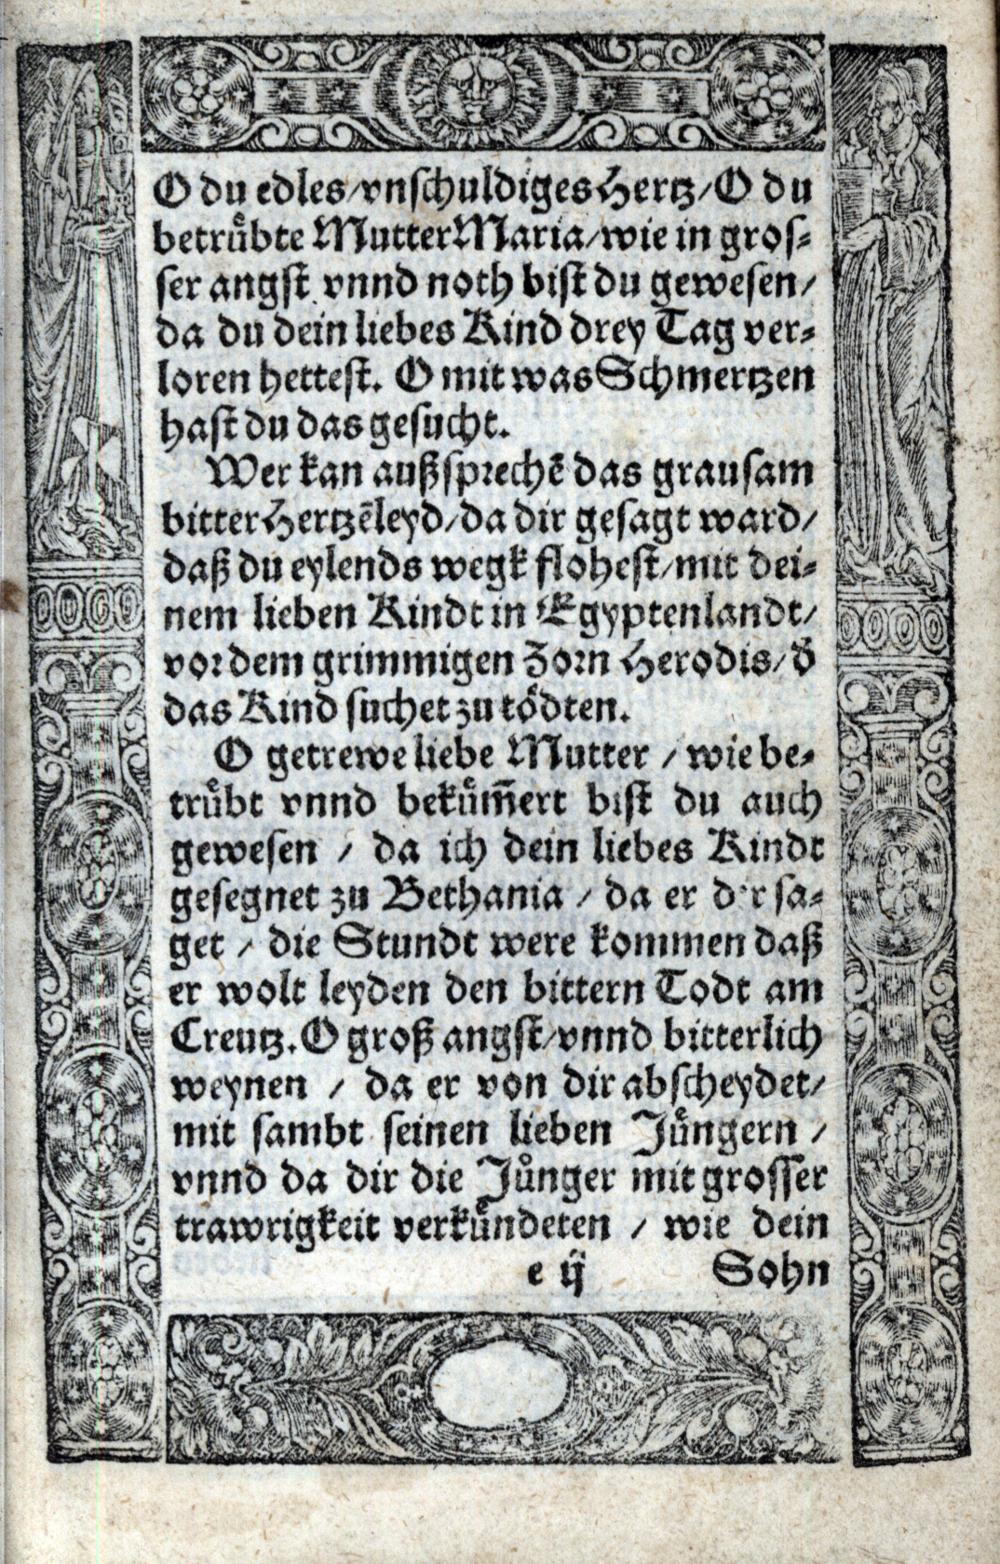 O du edles/vnschuldiges Hertz/O du
betruͤbte Mutter Maria/wie in gros⸗
ser angst vnnd noth bist du gewesen/
da du dein liebes Kind drey Tag ver⸗
loren hettest. O mit was Schmertzen
hast du das gesucht.
Wer kan außsprechẽ das grausam
bitter Hertzẽleyd/da dir gesagt ward/
daß du eylends wegk flohest/mit dei⸗
nem lieben Kindt in Egyptenlandt/
vor dem grimmigen Zorn Herodis/ď
das Kind suchet zu toͤdten.
O getrewe liebe Mutter / wie be⸗
truͤbt vnnd bekuͤm̃ert bist du auch
gewesen / da ich dein liebes Kindt
gesegnet zu Bethania / da er dir sa⸗
get / die Stundt were kommen daß
er wolt leyden den bittern Todt am
Creutz. O groß angst/vnnd bitterlich
weynen / da er von dir abscheydet/
mit sambt seinen lieben Juͤngern /
vnnd da dir die Juͤnger mit grosser
trawrigkeit verkuͤndeten / wie dein
e ij Sohn